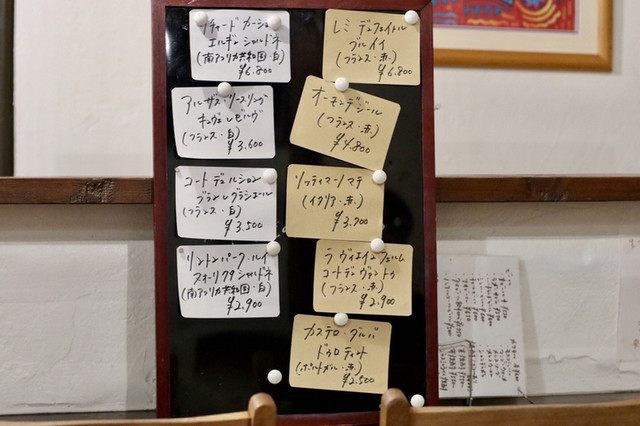 リチャード カーショー
エルギン シャルドネ
(南アフリカ共和国・白)
¥6.800
アルザス・リースリング
キュヴェ レゼルヴ
(フランス・白)
¥3.600
コート デュ ルション
ブラン レ グラシエール
(フランス・白)
¥3.500
リントンパーク・ルイ
フォーリクス シャルドネ
(南アフリカ共和国・白)
¥2.900
レミ デュフェイトル
ブルイイ
(フランス・赤)
¥6.800
オーモンデジール
(フランス・赤)
¥4.800
リッティマーノ マテ
(イタリア・赤)
¥3.700
ラ ヴィエイユ フェルム
コート デュ ヴァントゥ
(フランス・赤)
¥2.900
カステロ・ダルバ
ドウロ ティント
(ポルトガル・赤)
¥2.500